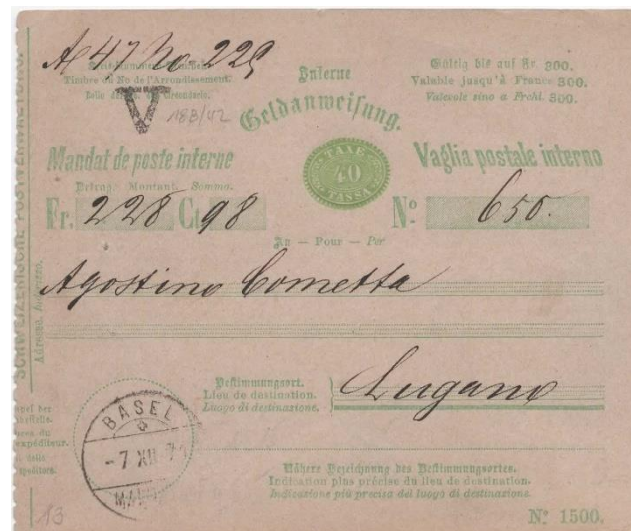 A 47 No 229
Timbre ou No de l'Arrondissement.
V
183/42
Interne
Geldanweisung.
Gültig bis auf Fr. 300.
Valable jusqu'à Francs 300.
Valevole sino a Frchi. 300.
Mandat de poste interne
TAXE
40
TASSA
Vaglia postale interno
Betrag. Montant. Somma.
Fr. 228 Ct. 98
Nº 650.
An — Pour — Per
Agostino Cometta
SCHWEIZERISCHE POSTVERWALTUNG.
Bestimmungsort.
Lieu de destination.
Luogo di destinazione.
Lugano
BASEL
-7 XII 7
MAND
Nähere Bezeichnung des Bestimmungsortes.
Indication plus précise du lieu de destination.
Indicazione più precisa del luogo di destinazione.
13
Nº 1500.